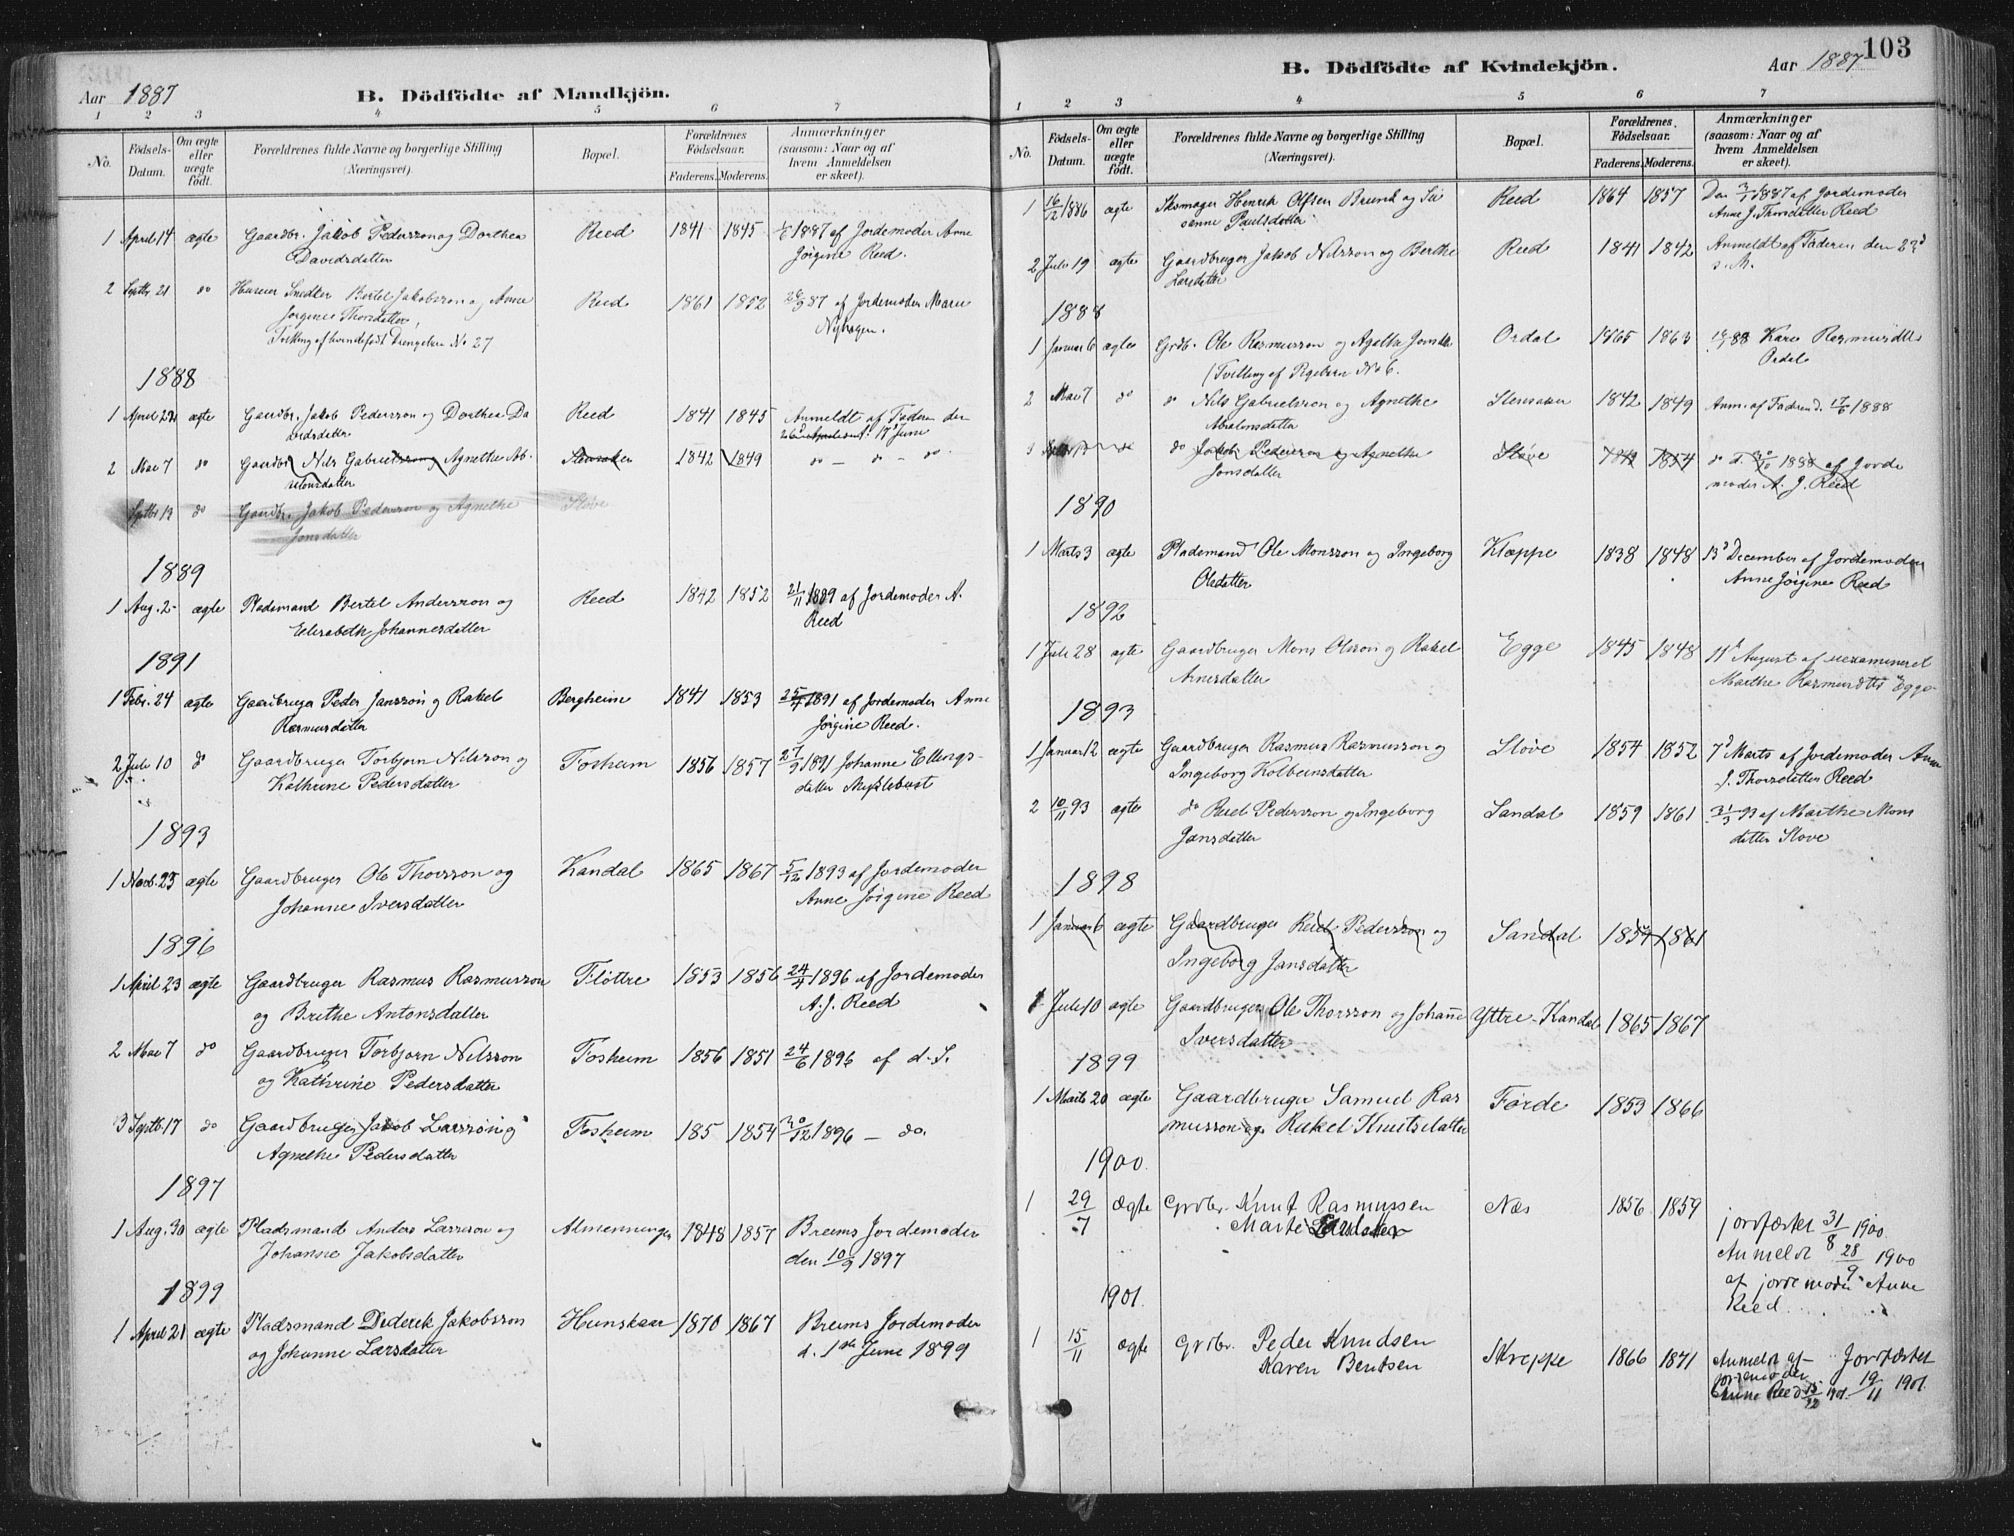 Aar 1887
B. Dödfödte af Mandkjön.
1 2 3 4 5 6 7
No.
Fødsels-
Datum.
Om ægte
eller
uægte
født.
Forældrenes fulde Navne og borgerlige Stilling
(Næringsvei).
Bopæl.
Forældrenes
Fødselsaar.
Faderens. Moderens.
Anmærkninger
(saasom: Naar og af
hvem Anmeldelsen
er skeet).
1 April 14 ægte Gaardbr. Jakob Pedersson og Dorthea Reed 1841 1845 1887 af Jordemoder Anne
Davidsdatter Jørgine Reed.
2 Septbr 21 do Snedker Bertel Jakobsson og Anne Reed 1861 1852 87 af Jordemoder Marie
Jørgine Thorsdatter, Nyhagen.
Tvilling af levendefødt Drengebarn No 27
1888
1 April 22 ægte Gaardbr. Jakob Pedersson og Dorthea Da Reed 1841 1845 Anmeldt af Faderen den
vidsdatter 17 June
2 Mai 7 do Gaardbr Nils Gabrielsson og Agnethe Ab- Stensaker 1842 1849 do - do - do
salonsdatter
Septbr 13 do Gaardbr. Jakob Pedersson og Agnethe Støve
Jonsdatter
1889
1 Aug. 2 ægte Pladsmand Bertel Andersson og Reed 1842 1852 21/11 1889 af Jordemoder A.
Elisabeth Johannesdatter Reed
1891
1 Febr. 24 ægte Gaardbruger Peder Jansson og Rakel Bergheim 1841 1853 25/4 1891 af Jordemoder Anne
Rasmusdatter Jørgine Reed.
2 Juli 10 do Gaardbruger Torbjørn Nilsson og Fosheim 1856 1857 27/9 1891 Johanne Ellings-
Kathrine Pedersdatter datter Myklebust
1893
1 Novb. 25 ægte Gaardbruger Ole Thorsson og Kandal 1865 1867 5/12 1893 af Jordemoder
Johanne Iversdatter Anne Jørgine Reed
1896
1 April 23 ægte Gaardbruger Rasmus Rasmusson Fløttre 1853 1856 24/4 1896 af Jordemoder
og Brithe Antonsdatter A.J. Reed
2 Mai 7 do Gaardbruger Torbjørn Nilsson Fosheim 1856 1851 24/6 1896 af d. S.
og Kathrine Pedersdatter
3 Septb. 17 do Gaardbruger Jakob Larsson og Fosheim 185 1854 30/12 1896 — do.
Agnethe Pedersdatter
1897
1 Aug. 30 ægte Pladsmand Anders Larsson og Almenningen 1848 1857 Breims Jordemoder
Johanne Jakobsdatter den 10/9 1897
1899
1 April 21 ægte Pladsmand Diderik Jakobsson Hunskaar 1870 1867 Breims Jordemoder
og Johanne Larsdatter d. 1ste June 1899
103
B. Dödfödte af Kvindekjön.
Aar 1887
1 2 3 4 5 6 7
No.
Fødsels-
Datum.
Om ægte
eller
uægte
født.
Forældrenes fulde Navne og borgerlige Stilling
(Næringsvei).
Bopæl.
Forældrenes
Fødselsaar.
Faderens. Moderens.
Anmærkninger
(saasom: Naar og af
hvem Anmeldelsen
er skeet).
1 16/12 1886 ægte Skomager Henrik Olsen Brunk og Su Reed 1864 1857 Den 3/1 1887 af Jordemoder
sanne Paulsdatter Anne J. Thorsdatter Reed
2 Juli 19 ægte Gaardbruger Jakob Nilsson og Berthe Reed 1841 1842 Anmeldt af Faderen den 23d
Larsdatter s. M.
1888
1 Januar 6 ægte Grdb. Ole Rasmusson og Agathe Jonsdtr Ordal 1865 1863 88 Kari Rasmusdtr
(Tvilling af Pigebarn No 6. Ordal
2 Mai 7 do do Nils Gabrielsson og Agnethe Stensaker 1842 1849 Anm. af Faderen d. 17/6 1888
Absalonsdatter
3 do do Jakob Pedersson og Agnethe Støve 1854 do d. 30/10 1888 af Jorde
Jonsdatter moder A. J. Reed
1890
1 Marts 3 ægte Pladsmand Ole Monsson og Ingeborg Klæppe 1838 1848 13d December af Jordemoder
Olsdatter Anne Jørgine Reed
1892
1 Juli 28 ægte Gaardbruger Mons Olsson og Rakel Egge 1845 1848 11d August af uexamineret
Arnesdatter Marthe Rasmusdtr Egge
1893
1 Januar 12 ægte Gaardbruger Rasmus Rasmusson og Støve 1854 1852 7d Marts af Jordemoder Anne
Ingeborg Kolbeinsdatter J. Thorsdatter Reed
2 10/11 93 ægte do Reid Pedersson og Ingeborg Sandal 1859 1861 31/3 93 af Marthe Mons
Jansdatter datter Støve
1898
1 Januar 6 ægte Gaardbruger Reid Pedersson og Sandal 1859 1861
Ingeborg Jansdatter
1 Juli 10 ægte Gaardbruger Ole Thorsson og Johanne Yttre-Kandal 1865 1867
Iversdatter
1899
1 Marts 20 ægte Gaardbruger Samuel Ras Førde 1853 1866
musson og Rakel Knutsdatter
1900.
1 29/7 Ægte Grdbr. Knut Rasmussen Næs 1856 1859 jordfæstet 31/8 1900.
Marte Anmeldt 28/9 1900
af jordemoder Anne
Reed
1901.
1 15/11 ægte Grdbr. Peder Knudsen Skreppe 1866 1871 Anmeldt af Jordfæstet
Karen Bentsen jordemoder 19/11 1901.
Anne Reed 15/12 1901.